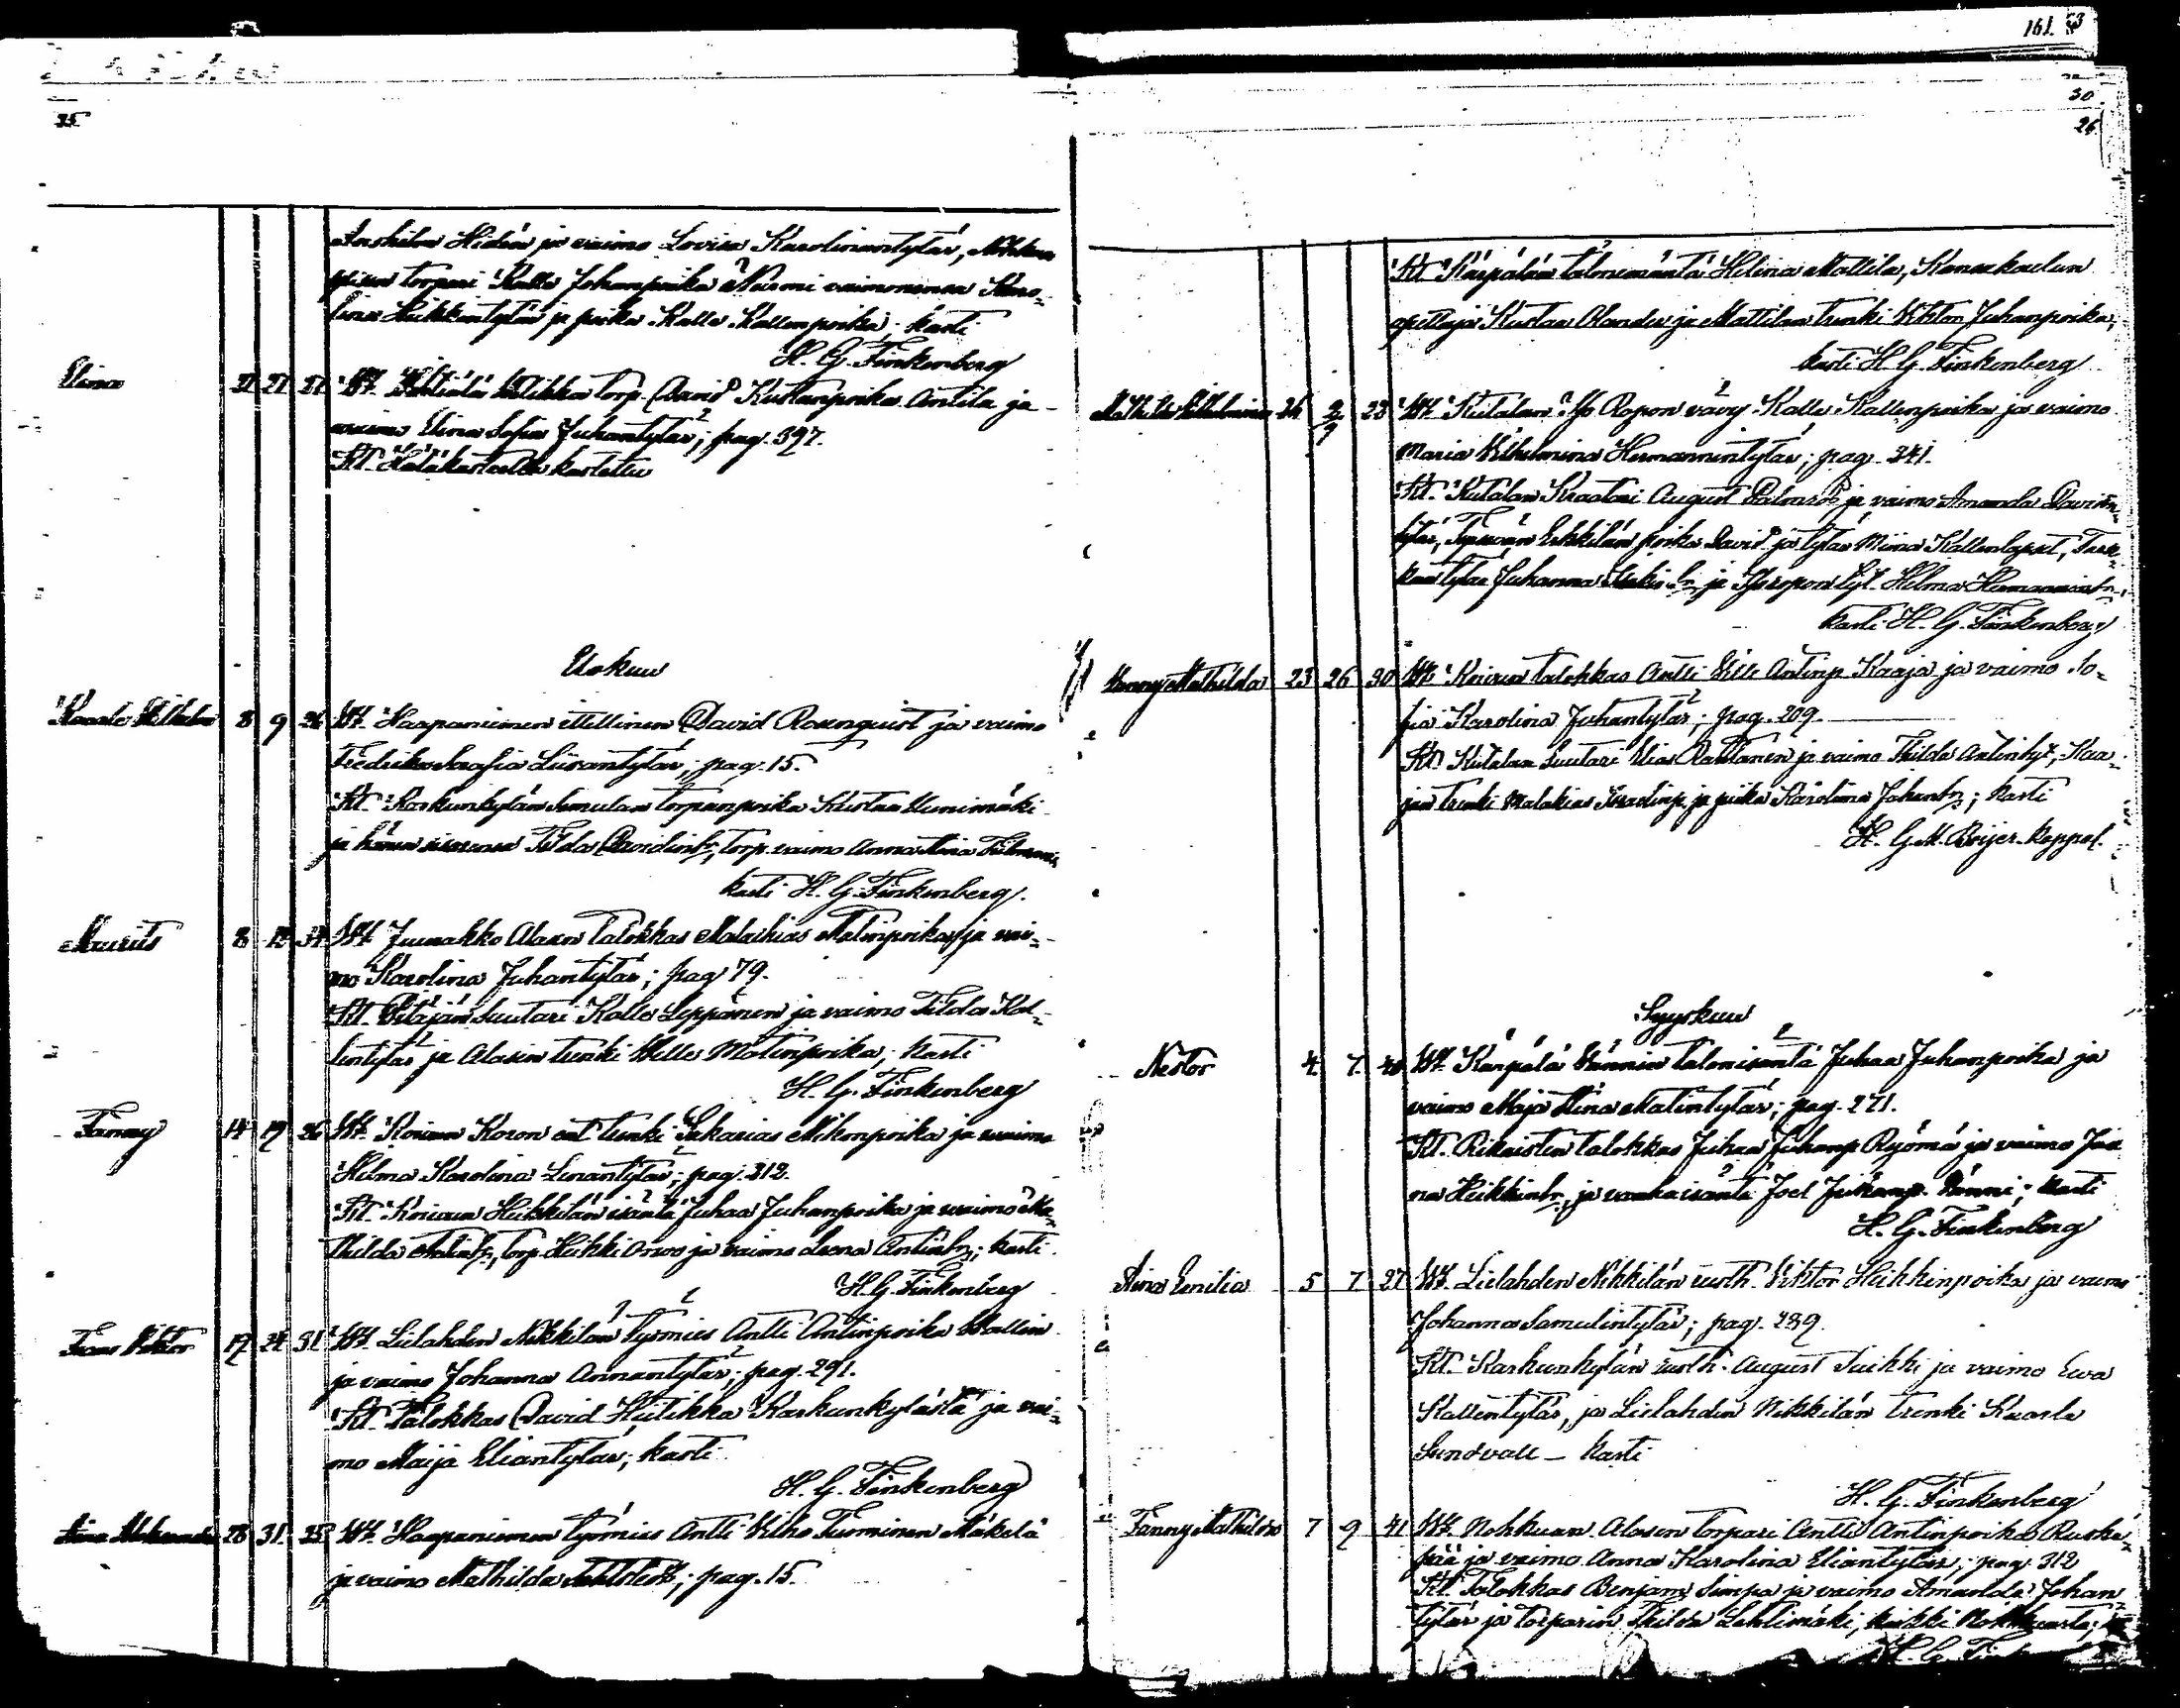 161.
30
26
35
Anshelm Hidén ja vaimo Lovisa Karolinantytär,
torpari Kalle Johanpoika Nurmi vaimonensa Karo-
lina Heikkintytär ja poika Kalle Kallenpoika; kasti
H. G. Finkenberg
Elina 21 21 Wt. torp. David Kustanpoika Antila ja
vaimo Elina Sofia Juhantytär; pag. 397.
Kt. Hätäkasteella kastettu
Elokuu
Kaarlo Wilhelm 8 9 26 Wt. Haapaniemen itellinen David Rosenquist ja vaimo
Fredrika Serafia Liisantytär; pag. 15.
Kt. Karkunkylän Simulan torpanpoika Kustaa Uunimäki
ja hänen sisarensa Tilda Davidintr, torp. vaimo Anna Stina
kasti H. G. Finkenberg.
Maurits 8 12 34 Wt. Junnakko Alasen talokkas Malachias Matinpoika ja vai-
mo Karolina Juhantytär; pag 79.
Kt. Pitäjän Suutari Kalle Leppänen ja vaimo Tilda Kal-
lentytär ja Alasen trenki Wille Matinpoika; kasti
H. G. Finkenberg
Fanny 14 19 26 Wt. Roismen Koron ent. trenki Sakarias Mikonpoika ja vaimo
Helma Karolina Leenantytär; pag. 312.
Kt. Heikkilän isäntä Juhaa Juhanpoika ja vaimo Ma-
thilda Antintr, torp. Heikki Orvo ja vaimo Leena Antintr; kasti
H. G. Finkenberg
Frans Viktor 17 24 31 Wt. Lielahden Nikkilän työmies Antti Antinpoika Wallin
ja vaimo Johanna Annantytär; pag. 291.
Kt. Talokkas David Hiitikka Karkunkylästä ja vai-
mo Maija Eliantytär; kasti
H. G. Finkenberg
28 31 25 Wt. Haapaniemen työmies Antti Vilho Tuominen Mäkelä
ja vaimo Mathilda; pag. 15.
Kt. Kärpälän talonemäntä Helina Mattila, Kansakoulun
opettaja Kustaa Olander ja Mattilan trenki Viktor Juhanpoika,
kasti H. G. Finkenberg
Mathilda Wilhelmina 26 2/9 23 Wt. Kutalan Yli Rapon vävy Kalle Kallenpoika ja vaimo
Maria Wilhelmina Hermannintytär; pag. 241.
Kt. Kutalan Kraatari August Palmroos ja vaimo Amanda Davidin-
tytär, Tyrvään Erkkilän poika David ja tytär Miina Kallenlapset,
tytär Juhanna ja tyt. Helma Hermannintr;
kasti H. G. Finkenberg
Fanny Mathilda 23 26 30 Wt. talokkas Antti Ville Antinp. Kaaja ja vaimo So-
fia Karolina Juhantytär; pag. 209.
Kt. Kutalan Suutari Elias Rautanen ja vaimo Thilda Antintyt., Kaa-
jan trenki Malakias Israelinp. ja piika Karolina Johantr; kasti
H. G. M. Beijer. kappal.
Syyskuu
Nestor 4. 7. 40 Wt. Kärpälä Vännin talonisäntä Juhaa Juhanpoika ja
vaimo Maja Stina Matintytär; pag. 271.
Kt. Rikaisten talokkas Juhaa Juhanp. Ryömä ja vaimo Jus-
na Heikkintr, ja vanhaisäntä Joel Juhanp. Vänni; kasti
H. G. Finkenberg
Aina Emilia 5 7 27 Wt. Lielahden Nikkilän Viktor Heikkinpoika ja vaimo
Johanna Samulintytär; pag. 289.
Kt. Karkunkylän August Suikki ja vaimo Ewa
Kallentytär, ja Lielahden Nikkilän trenki Kaarlo
Sundvall – kasti
H. G. Finkenberg
Fanny Mathilda 7 9 41 Wt. Nohkuan Alasen torpari Antti Antinpoika Ruska-
pää ja vaimo Anna Karolina Eliantytär; pag. 312
Kt. Talokkas Benjam. Simpa ja vaimo Amanda Johan-
tytär ja torparin Thilda Lehtimäki, kaikki Nohkuasta;
H. G.